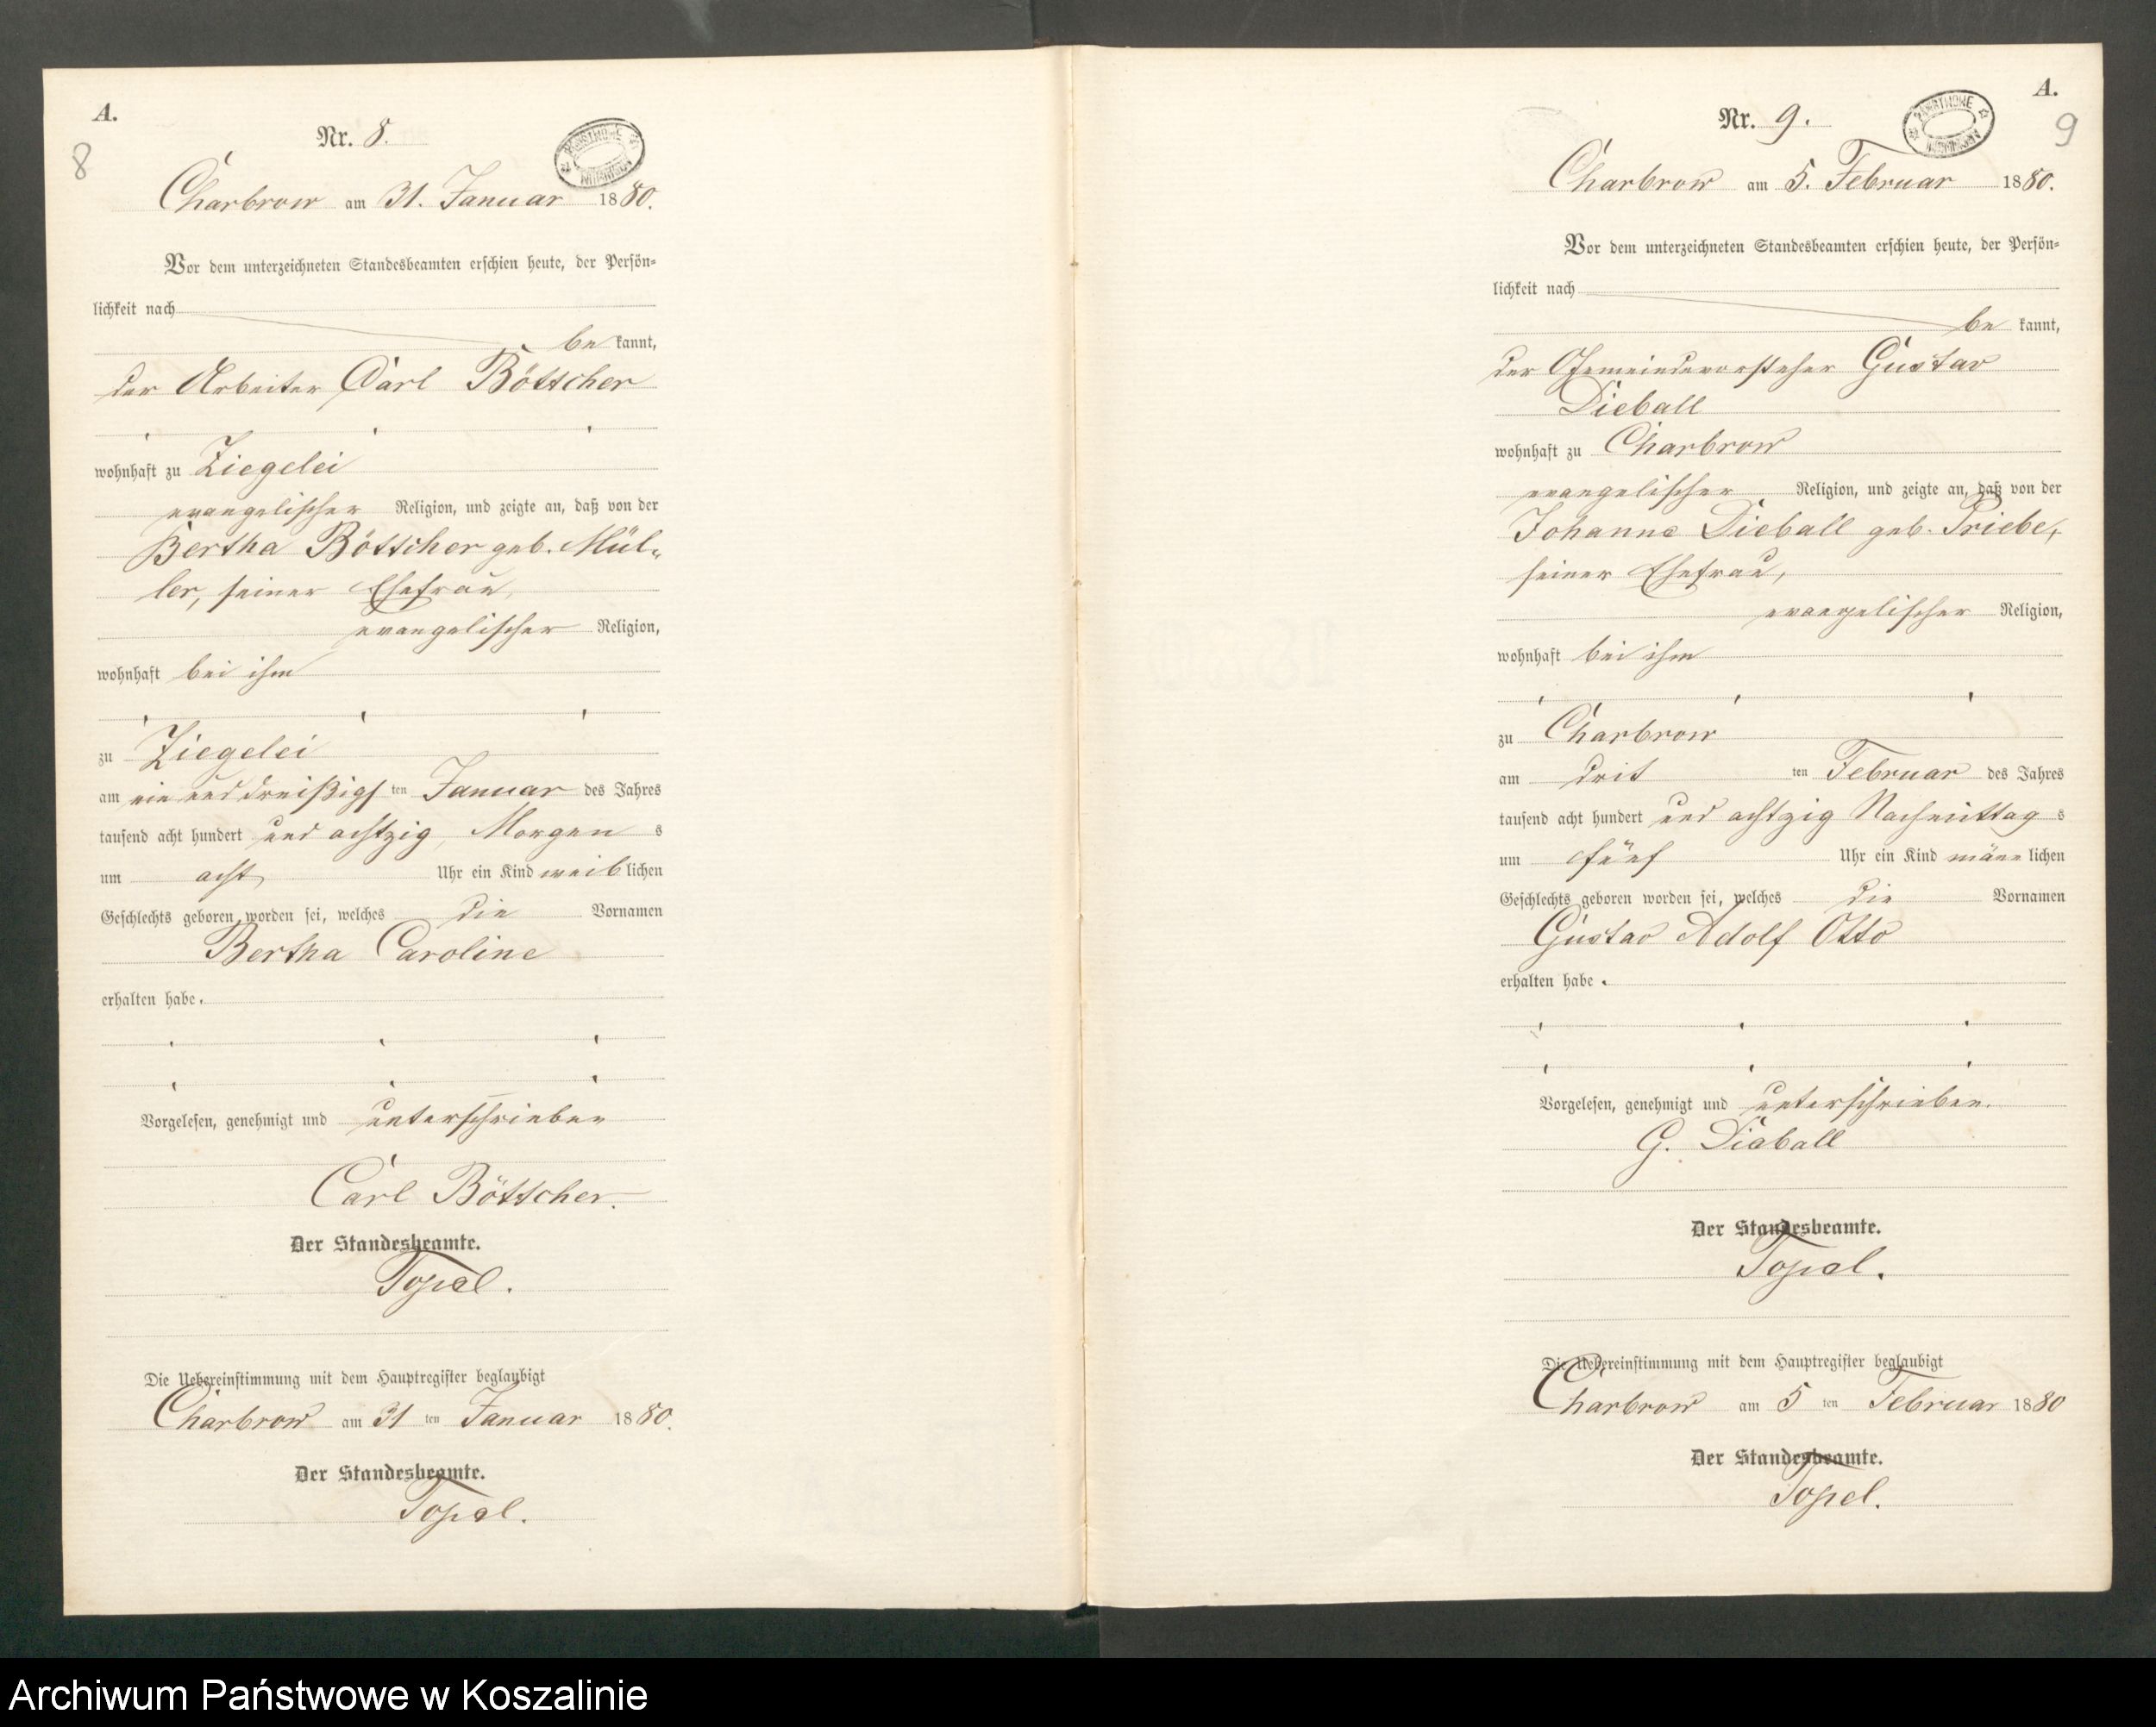 A.
8
Nr. 8.
Charbrow am 31. Januar 1880.
Vor dem unterzeichneten Standesbeamten erschien heute, der Persön-
lichkeit nach
be kannt,
der Arbeiter Carl Böttcher
wohnhaft zu Ziegelei
evangelischer Religion, und zeigte an, daß von der
Bertha Böttcher geb. Mül-
ler, seiner Ehefrau,
evangelischer Religion,
wohnhaft bei ihm
zu Ziegelei
am ein und dreißigs ten Januar des Jahres
tausend acht hundert und achtzig, Morgen s
um acht Uhr ein Kind weib lichen
Geschlechts geboren worden sei, welches die Vornamen
Bertha Caroline
erhalten habe.
Vorgelesen, genehmigt und unterschrieben
Carl Böttcher.
Der Standesbeamte.
Topel.
Die Uebereinstimmung mit dem Hauptregister beglaubigt
Charbrow am 31 ten Januar 1880.
Der Standesbeamte.
Topel.
A.
9
Nr. 9.
Charbrow am 5. Februar 1880.
Vor dem unterzeichneten Standesbeamten erschien heute, der Persön-
lichkeit nach
be kannt,
der Gemeindevorsteher Gustav
Dieball
wohnhaft zu Charbrow
evangelischer Religion, und zeigte an, daß von der
Johanne Dieball geb. Priebe,
seiner Ehefrau,
evangelischer Religion,
wohnhaft bei ihm
zu Charbrow
am drit ten Februar des Jahres
tausend acht hundert und achtzig Nachmittag s
um fünf Uhr ein Kind männ lichen
Geschlechts geboren worden sei, welches die Vornamen
Gustav Adolf Otto
erhalten habe.
Vorgelesen, genehmigt und unterschrieben.
G. Dieball
Der Standesbeamte.
Topel.
Die Uebereinstimmung mit dem Hauptregister beglaubigt
Charbrow am 5 ten Februar 1880
Der Standesbeamte.
Topel.
Archiwum Państwowe w Koszalinie